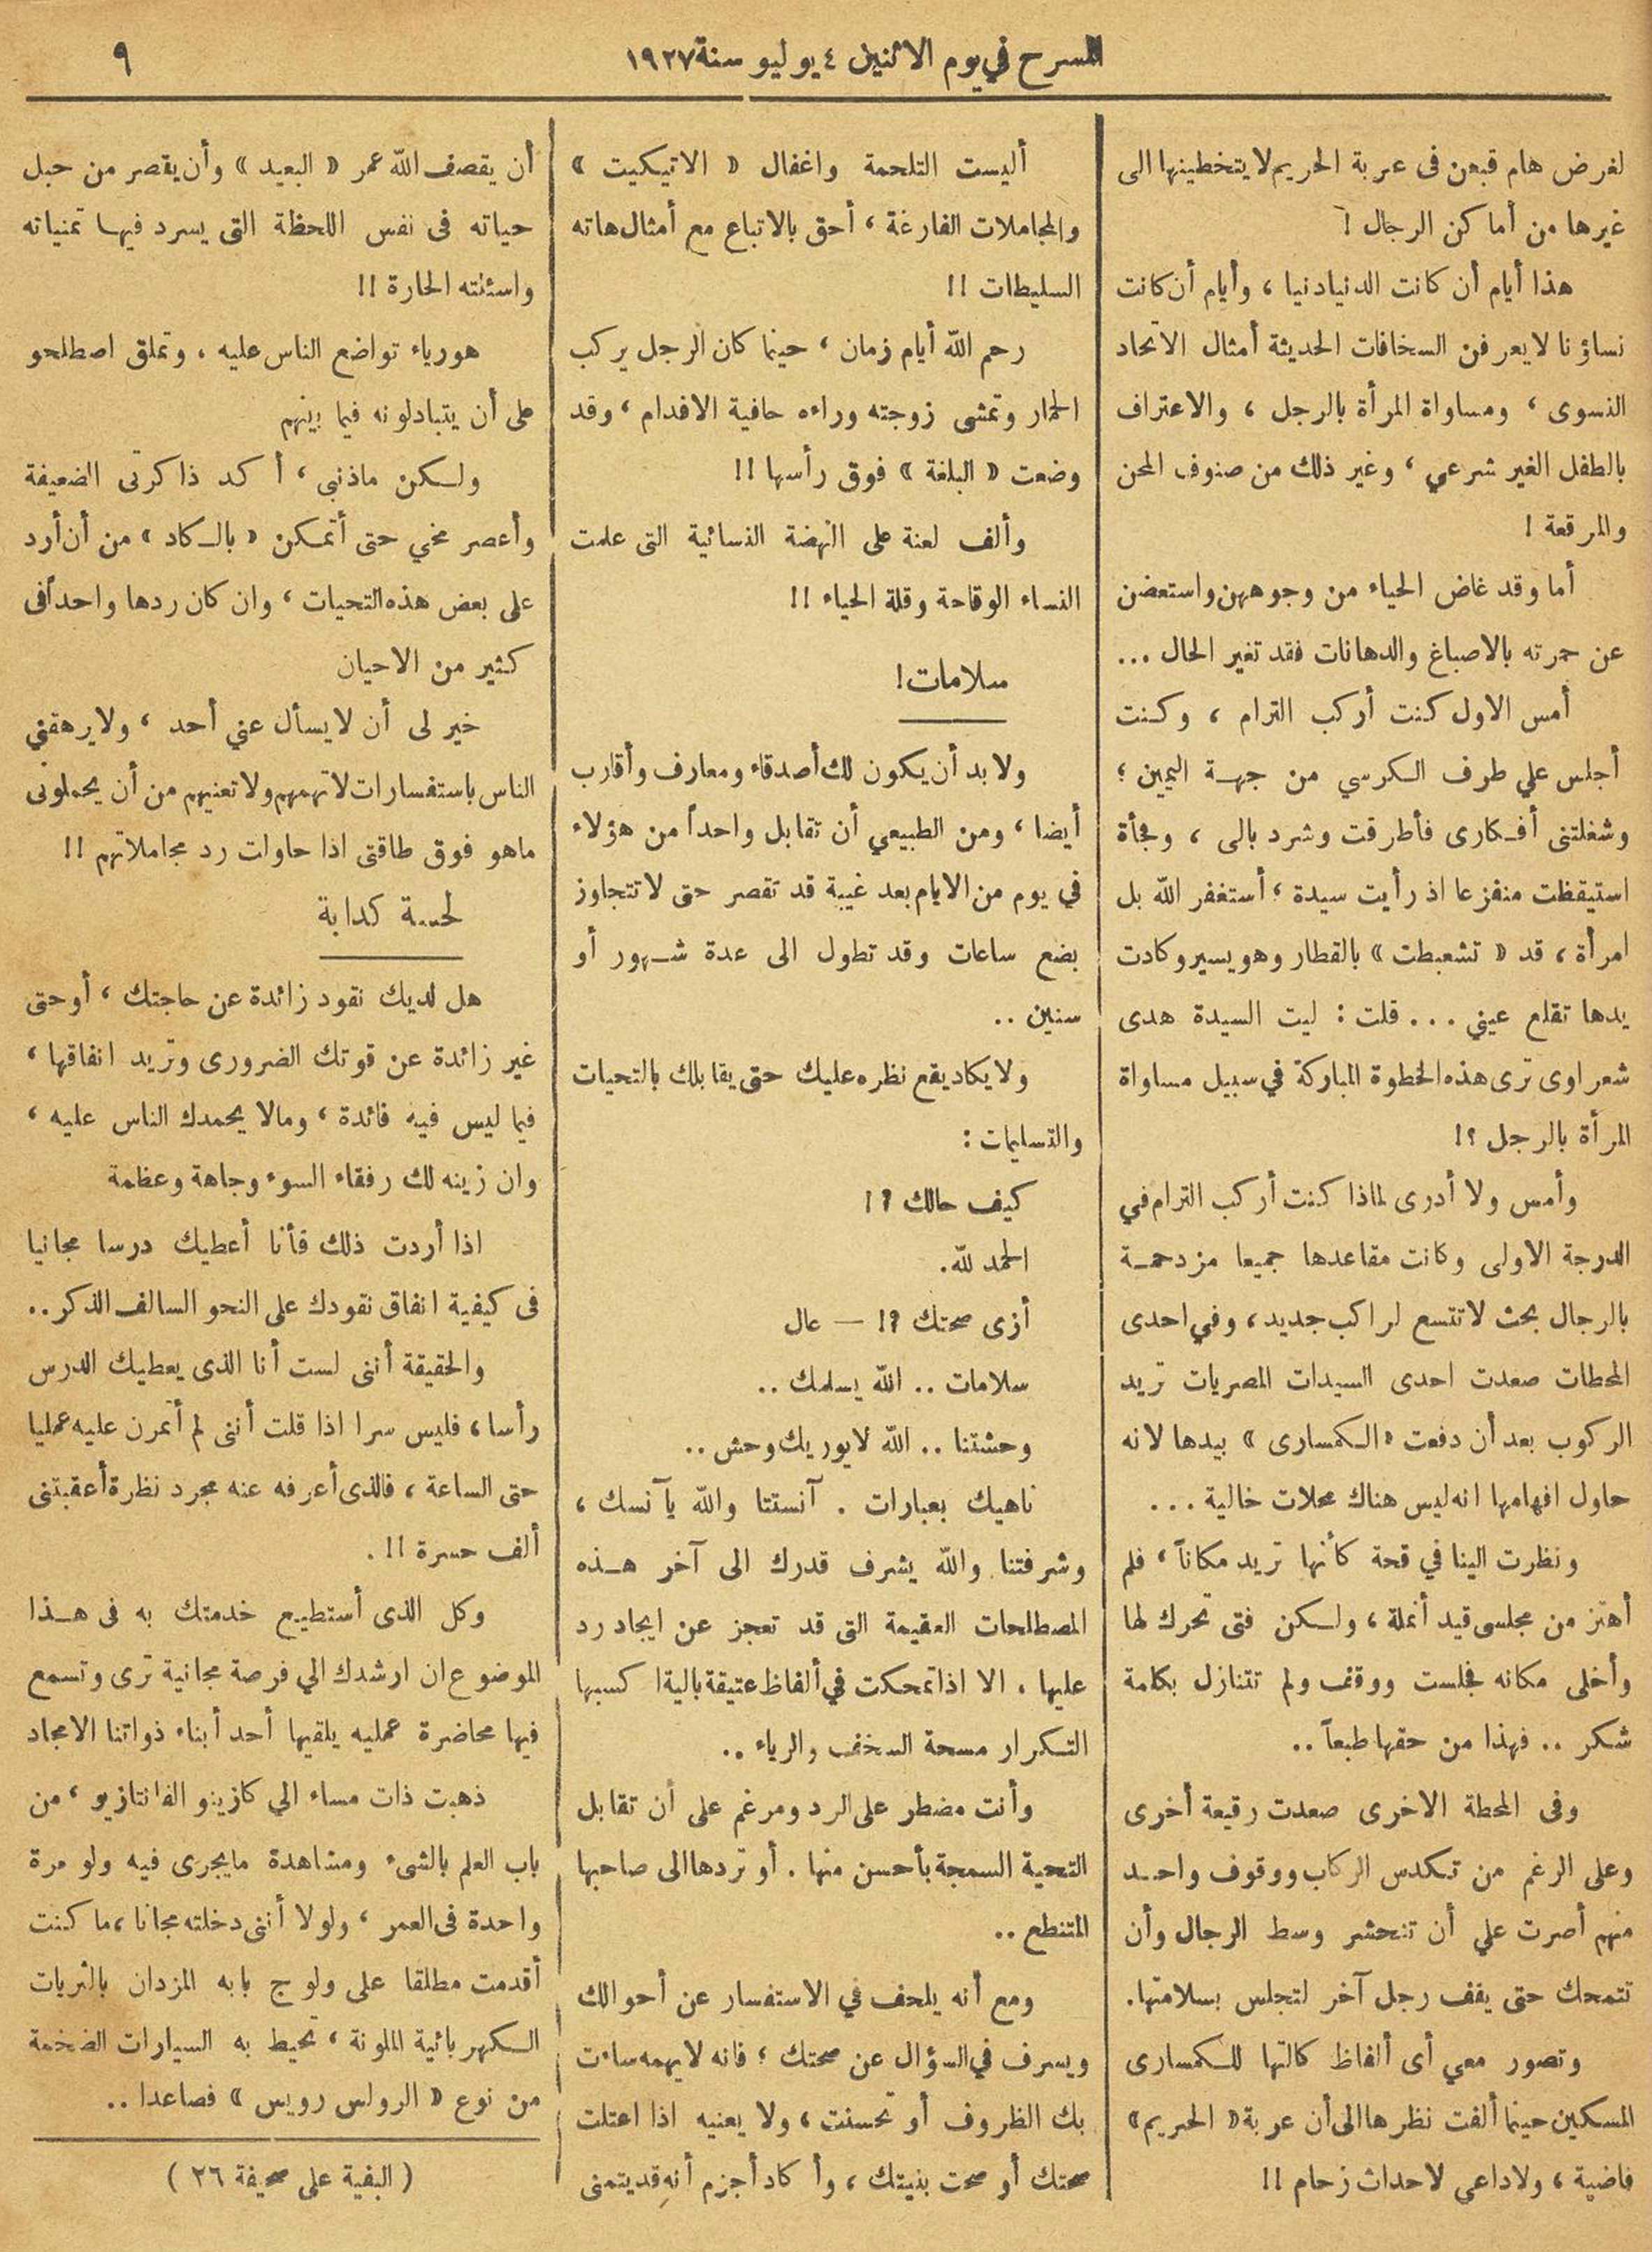 المسرح في يوم الاثنين ٤ يوليو سنة ١٩٢٧
٩
لغرض هام قبعن فى عربة الحريم لا يتخطينها الى
غيرها من أماكن الرجال !
هذا أيام أن كانت الدنيا دنيا ، وأيام أن كانت
نساؤنا لا يعرفن السخافات الحديثة أمثال الاتحاد
النسوى ، ومساواة المرأة بالرجل ، والاعتراف
بالطفل الغير شرعي ، وغير ذلك من صنوف المحن
والمرقعة !
أما وقد غاض الحياء من وجوههن واستعضن
عن حمرته بالاصباغ والدهانات فقد تغير الحال ...
أمس الاول كنت أركب الترام ، وكنت
أجلس علي طرف الكرسي من جهة اليمين ؛
وشغلتنى أفكارى فأطرقت وشرد بالى ، وفجأة
استيقظت منفزعا اذ رأيت سيدة ؛ أستغفر الله بل
امرأة ، قد « تشعبطت » بالقطار وهو يسير وكادت
يدها تقلع عيني ... قلت : ليت السيدة هدى
شعراوى ترى هذه الخطوة المباركة في سبيل مساواة
المرأة بالرجل ؟!
وأمس ولا أدرى لماذا كنت أركب الترام في
الدرجة الاولى وكانت مقاعدها جميعا مزدحمة
بالرجال بحث لا تتسع لراكب جديد ، وفي احدى
المحطات صعدت احدى السيدات المصريات تريد
الركوب بعد أن دفعت « الكمسارى » بيدها لانه
حاول افهامها انه ليس هناك محلات خالية ...
ونظرت الينا في قحة كأنها تريد مكاناً ، فلم
أهتز من مجلسى قيد أنملة ، ولكن فتى تحرك لها
وأخلى مكانه فجلست ووقف ولم تتنازل بكلمة
شكر .. فهذا من حقها طبعاً ..
وفى المحطة الاخرى صعدت رقيعة أخرى
وعلى الرغم من تكدس الركاب ووقوف واحد
منهم أصرت علي أن تنحشر وسط الرجال وأن
تتمحك حتى يقف رجل آخر لتجلس بسلامتها.
وتصور معي أى ألفاظ كالتها للكمسارى
المسكين حينما ألفت نظرها الى أن عربة « الحريم »
فاضية ، ولا داعى لاحداث زحام !!
أليست التلحمة واغفال « الاتيكيت »
والمجاملات الفارغة ، أحق بالاتباع مع أمثال هاته
السليطات !!
رحم الله أيام زمان ، حينما كان الرجل يركب
الحمار وتمشى زوجته وراءه حافية الاقدام ، وقد
وضعت « البلغة » فوق رأسها !!
وألف لعنة على النهضة النسائية التى علمت
النساء الوقاحة وقلة الحياء !!
سلامات !
ولا بد أن يكون لك أصدقاء ومعارف وأقارب
أيضا ، ومن الطبيعي أن تقابل واحداً من هؤلاء
في يوم من الايام بعد غيبة قد تقصر حتى لا تتجاوز
بضع ساعات وقد تطول الى عدة شهور أو
سنين ..
ولا يكاد يقع نظره عليك حتى يقابلك بالتحيات
والتسليمات :
كيف حالك ؟!
الحمد لله.
أزى صحتك ؟! — عال
سلامات .. الله يسلمك ..
وحشتنا .. الله لا يوريك وحش ..
ناهيك بعبارات . آنستتا والله يآنسك ،
وشرفتنا والله يشرف قدرك الى آخر هذه
المصطلحات العقيمة التى قد تعجز عن ايجاد رد
عليها ، الا اذا تمحكت في ألفاظ عتيقة بالية اكسبها
التكرار مسحة السخف والرياء ..
وأنت مضطر على الرد ومرغم على أن تقابل
التحية السمجة بأحسن منها . أو تردها الى صاحبها
المتنطع ..
ومع أنه يلحف في الاستفسار عن أحوالك
ويسرف في السؤال عن صحتك ؛ فانه لا يهمه ساءت
بك الظروف أو تحسنت ، ولا يعنيه اذا اعتلت
صحتك أو صحت بنيتك ، وأكاد أجزم أنه قد يتمنى
أن يقصف الله عمر « البعيد » وأن يقصر من حبل
حياته فى نفس اللحظة التى يسرد فيها تمنياته
واسئلته الحارة !!
هو رياء تواضع الناس عليه ، وتملق اصطلحو
على أن يتبادلونه فيما بينهم
ولكن ماذنبى ، أكد ذاكرتى الضعيفة
وأعصر مخي حتى أتمكن « بالكاد » من أن أرد
على بعض هذه التحيات ، وان كان ردها واحداً فى
كثير من الاحيان
خير لى أن لا يسأل عني أحد ، ولا يرهقني
الناس باستفسارات لاتهمهم ولا تعنيهم من أن يحملونى
ماهو فوق طاقتى اذا حاولت رد مجاملاتهم !!
لحسة كدابة
هل لديك نقود زائدة عن حاجتك ، أو حتى
غير زائدة عن قوتك الضرورى وتريد انفاقها ،
فيما ليس فيه فائدة ، ومالا يحمدك الناس عليه ،
وان زينه لك رفقاء السوء وجاهة وعظمة
اذا أردت ذلك فأنا أعطيك درسا مجانيا
فى كيفية انفاق نقودك على النحو السالف الذكر ..
والحقيقة أننى لست أنا الذى يعطيك الدرس
رأسا ، فليس سرا اذا قلت أننى لم أتمرن عليه عمليا
حتى الساعة ، فالذى أعرفه عنه مجرد نظرة أعقبتنى
ألف حسرة !! .
وكل الذى أستطيع خدمتك به فى هذا
الموضوع ان ارشدك الي فرصة مجانية ترى وتسمع
فيها محاضرة عمليه يلقيها أحد أبناء ذواتنا الامجاد
ذهبت ذات مساء الي كازينو الفانتازيو ، من
باب العلم بالشىء ومشاهدة مايجرى فيه ولو مرة
واحدة فى العمر ، ولولا أننى دخلته مجانا ، ما كنت
أقدمت مطلقا على ولوج بابه المزدان بالثريات
الكهربائية الملونة ، تحيط به السيارات الضخمة
من نوع « الرولس رويس » فصاعدا ..
( البقية على صحيفة ٢٦ )